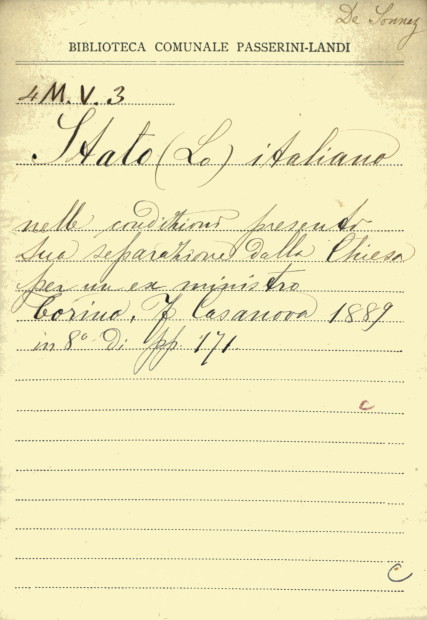 De Sonnaz
BIBLIOTECA COMUNALE PASSERINI-LANDI
4 M. V. 3
Stato (Lo) italiano
nelle condizioni presenti
sua separazione dalla Chiesa
per un ex ministro
Torino, F Casanova 1889
in 8° di pp. 171
c
C